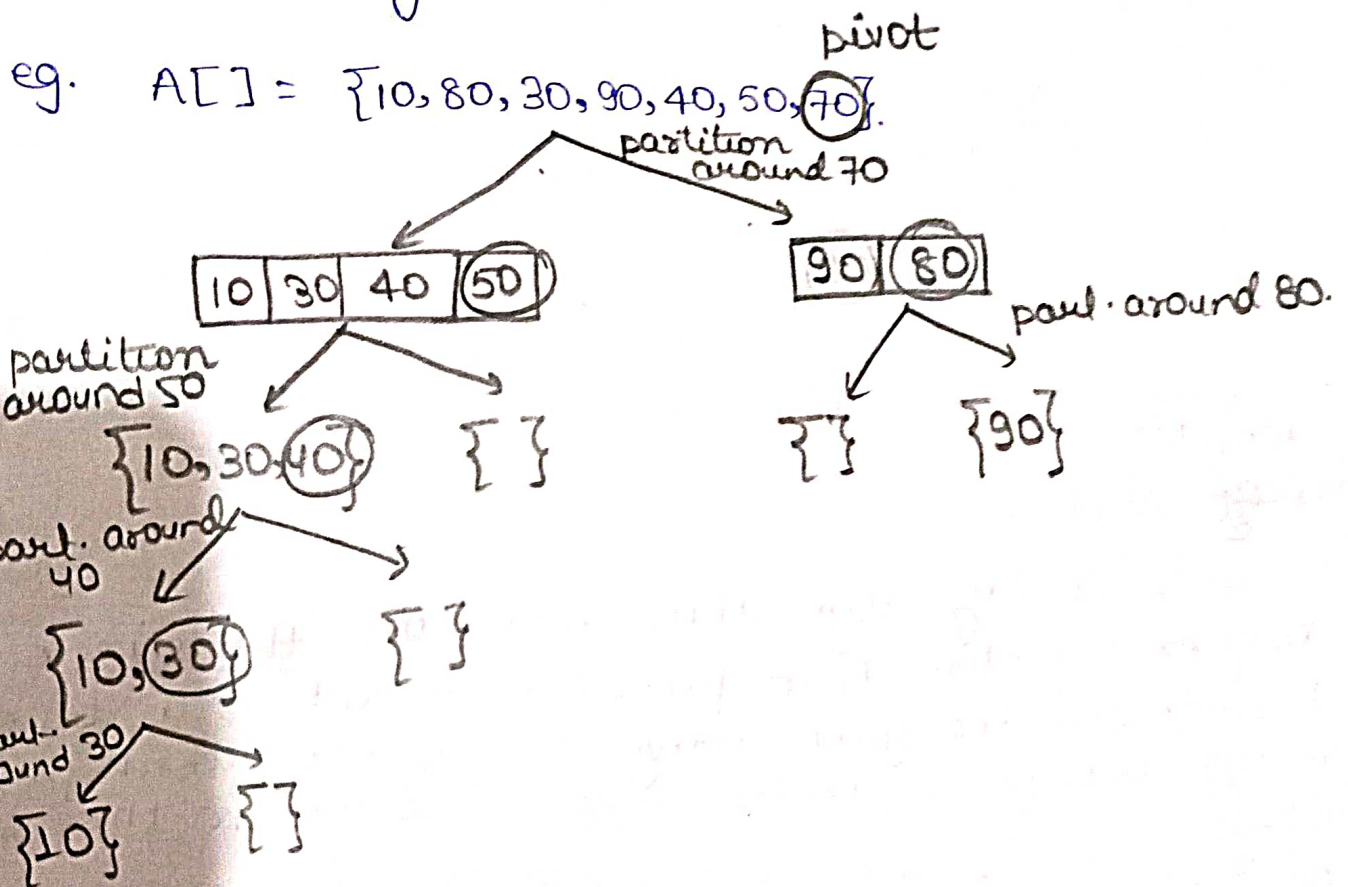 pivot
eg. A[ ] = {10, 80, 30, 90, 40, 50, 70}.
partition
around 70
10 30 40 50
90 80
part. around 80.
partition
around 50
{10, 30, 40} { }
{ } {90}
part. around
40
{10, 30} { }
30
{10} { }